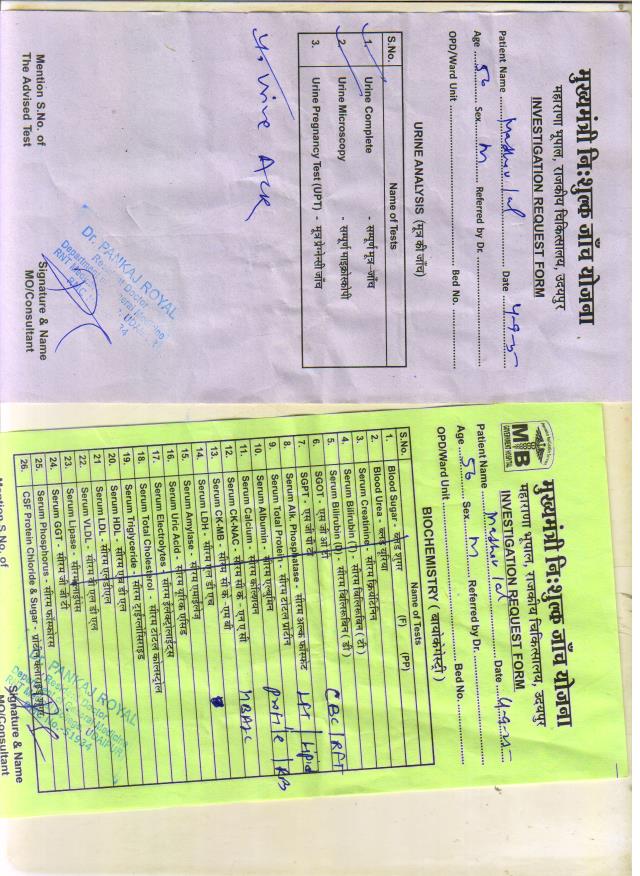 मुख्यमंत्री निःशुल्क जाँच योजना
महाराणा भूपाल, राजकीय चिकित्सालय, उदयपुर
INVESTIGATION REQUEST FORM
Patient Name Madhav lal Date
Age 56 Sex M Referred by Dr.
OPD/Ward Unit Bed No.
URINE ANALYSIS (मूत्र की जाँच)
S.No. Name of Tests
1. Urine Complete - सम्पूर्ण मूत्र -जाँच
2. Urine Microscopy - सम्पूर्ण माइक्रोस्कोपी
3. Urine Pregnancy Test (UPT) - मूत्र प्रेग्नेन्सी जाँच
Urine ACR
Dr. PANKAJ ROYAL
Mention S.No. of
The Advised Test
Signature & Name
MO/Consultant
MB
GOVERNMENT HOSPITAL
मुख्यमंत्री निःशुल्क जाँच योजना
महाराणा भूपाल, राजकीय चिकित्सालय, उदयपुर
INVESTIGATION REQUEST FORM
Patient Name Madhav lal Date
Age 56 Sex M Referred by Dr.
OPD/Ward Unit Bed No.
BIOCHEMISTRY ( बायोकेमेस्ट्री )
S.No. Name of Tests
1. Blood Sugar - ब्लड शुगर (F) (PP)
2. Blood Urea - ब्लड यूरिया
3. Serum Creatinine - सीरम क्रिएटिनिन
4. Serum Bilirubin (T) - सीरम बिलिरूबिन ( टी )
5. Serum Bilirubin (D) - सीरम बिलिरूबिन ( डी )
6. SGOT - एस जी ओ टी
7. SGPT - एस जी पी टी
8. Serum Alk. Phosphatase - सीरम अल्क फॉस्फेट
9. Serum Total Protein - सीरम टोटल प्रोटीन
10. Serum Albumin - सीरम एल्बुमिन
11. Serum Calcium - सीरम कैल्शियम
12. CK-NAC - सी के - एन ए सी
13. CK-MB - सी के - एम बी
14. Serum LDH - सीरम एल डी एच
15. Serum Amylase - सीरम एमाइलेज
16. Serum Uric Acid - सीरम यूरिक एसिड
17. Serum Electrolytes - सीरम इलेक्ट्रोलाईट्स
18. Serum Total Cholesterol - सीरम टोटल कोलेस्ट्रोल
19. Serum Triglyceride - सीरम ट्राईग्लीसराइड
20. Serum HDL - सीरम एच डी एल
21. Serum LDL - सीरम एल डी एल
22. Serum VLDL - सीरम वी एल डी एल
23. Serum Lipase - सीरम लाइपेस
24. Serum GGT - सीरम जी जी टी
25. Serum Phosphorus - सीरम फॉस्फोरस
26. CSF Protein Chloride & Sugar -
CBC / RFT
LFT / Lipid
profile
HBA1C
PANKAJ ROYAL
Mention S.No. of
Signature & Name
MO/Consultant